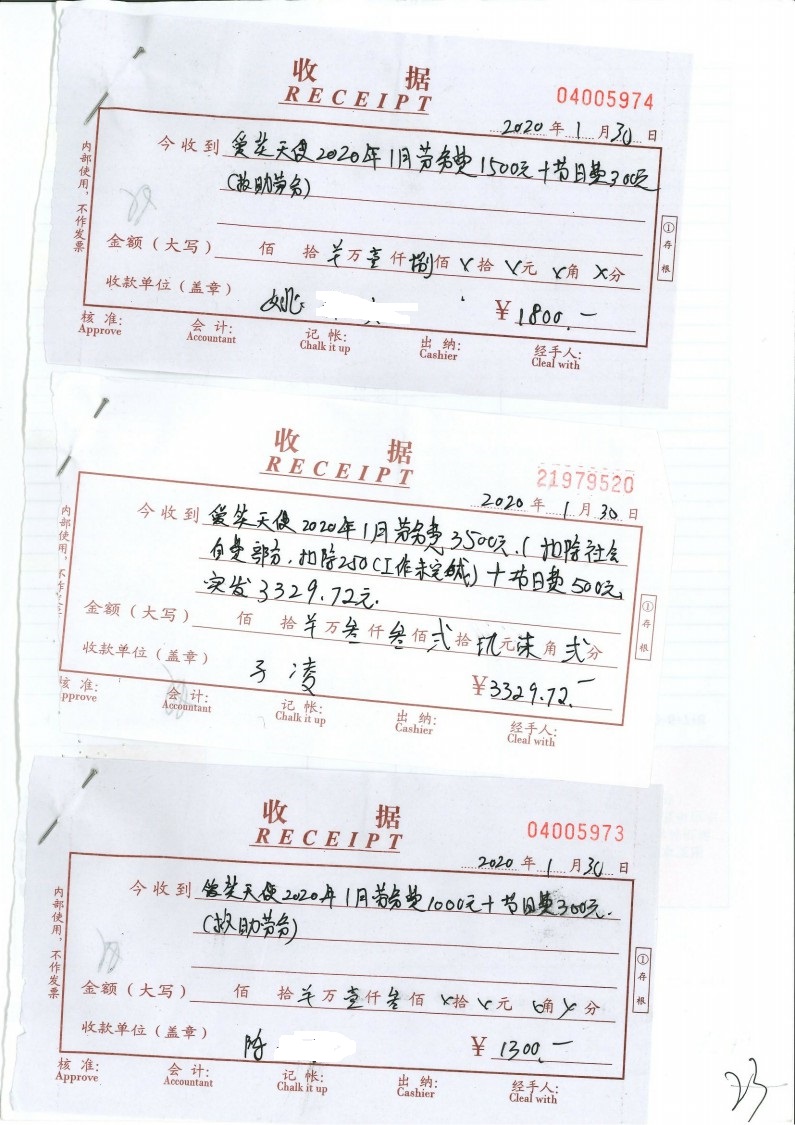 收 据
RECEIPT
04005974
2020 年 1 月 30 日
今收到 爱笑天使2020年1月劳务费1500元+节日费300元
(救助劳务)
金额（大写） 佰 拾 羊 万 壹 仟 捌 佰 x 拾 x 元 x 角 x 分
收款单位（盖章） 姚 ¥ 1800.一
核 准: 会 计: 记 帐: 出 纳: 经手人:
Approve Accountant Chalk it up Cashier Cleal with
内部使用，不作发票
①存根
收 据
RECEIPT
21979520
2020 年 1 月 30 日
今收到 爱笑天使2020年1月劳务费3500元.(扣除社会
自费部分.扣除250(工作未完成)+节日费500元.
实发3329.72元.
金额（大写） 佰 拾 羊 万 叁 仟 叁 佰 弍 拾 玖 元 柒 角 弍 分
收款单位（盖章） 子凌 ¥ 3329.72.一
核 准: 会 计: 记 帐: 出 纳: 经手人:
pprove Accountant Chalk it up Cashier Cleal with
内部使用，不作
①存根
收 据
RECEIPT
04005973
2020 年 1 月 30 日
今收到 爱笑天使2020年1月劳务费1000元+节日费300元.
(救助劳务)
金额（大写） 佰 拾 羊 万 壹 仟 叁 佰 x 拾 x 元 x 角 x 分
收款单位（盖章） 陈 ¥ 1300.一
核 准: 会 计: 记 帐: 出 纳: 经手人:
Approve Accountant Chalk it up Cashier Cleal with
内部使用，不作发票
①存根
23